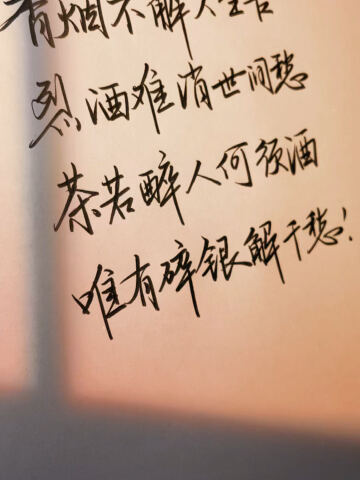 有烟不解人生苦
烈酒难消世间愁
茶若醉人何须酒
唯有碎银解千愁!